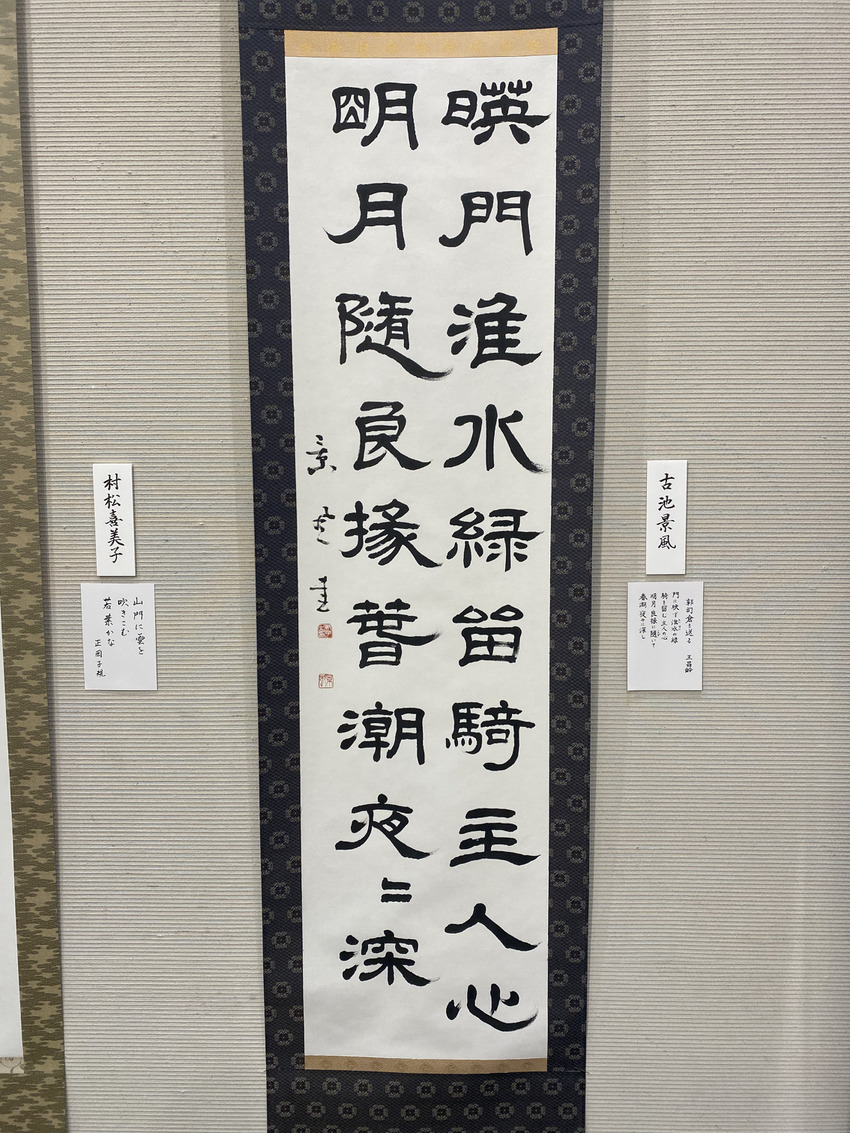 古池景風
郭司倉を送る 王昌齢
門に映ず 淮水の緑
騎を留む 主人の心
明月 良掾に随いて
春潮 夜々に深し
暎門淮水緑留騎主人心
朙月隨良掾萅潮夜〻深
景風書
村松喜美子
山門に雲を
吹きこむ
若葉かな
正岡子規